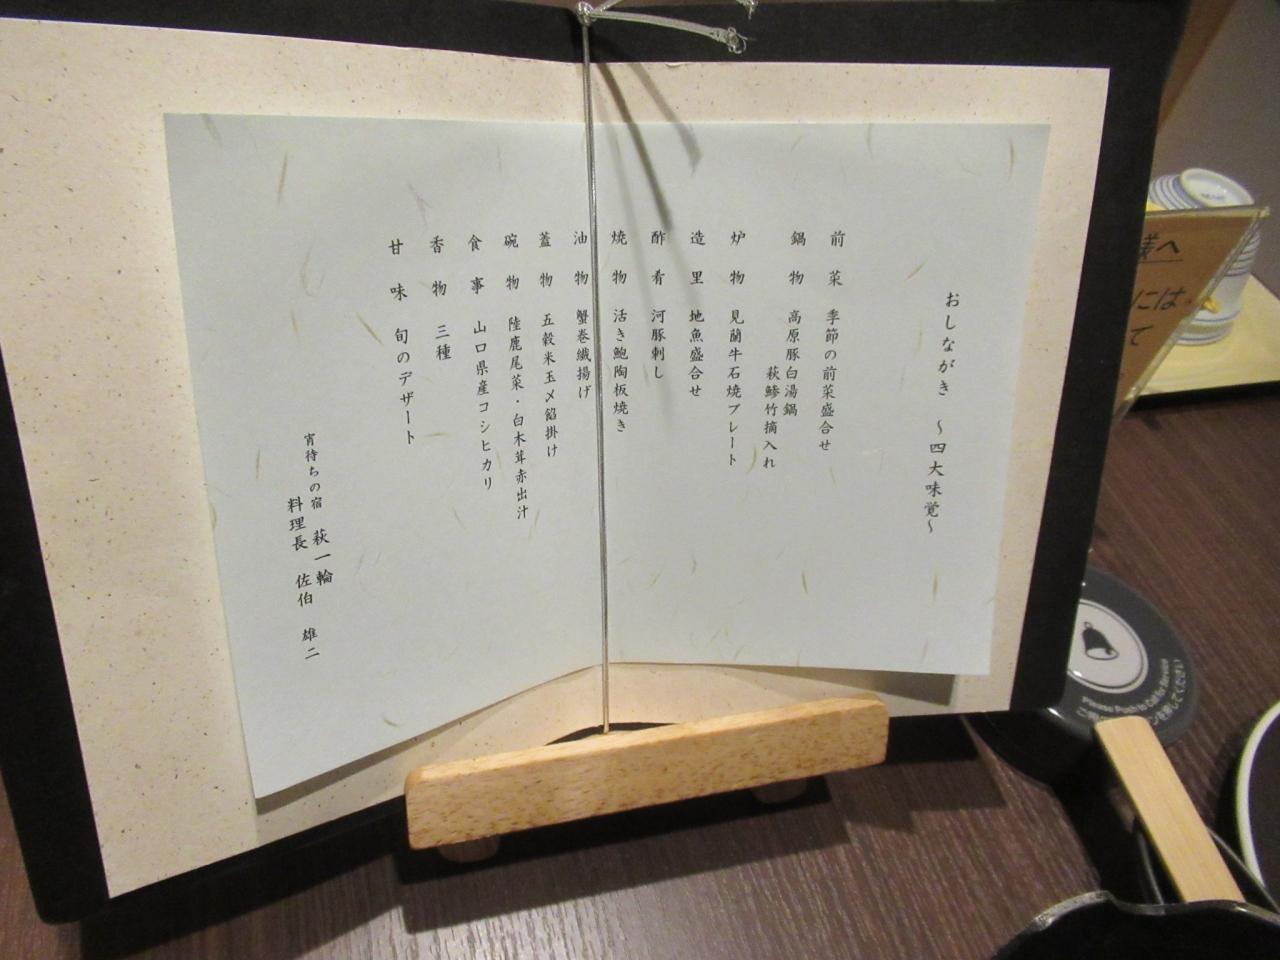 おしながき　～四大味覚～
前菜　季節の前菜盛合せ
鍋物　高原豚白湯鍋
萩鯵竹摘入れ
炉物　見蘭牛石焼プレート
造里　地魚盛合せ
酢肴　河豚刺し
焼物　活き鮑陶板焼き
油物　蟹巻繊揚げ
蓋物　五穀米玉〆餡掛け
碗物　陸鹿尾菜・白木茸赤出汁
食事　山口県産コシヒカリ
香物　三種
甘味　旬のデザート
宵待ちの宿　萩一輪
料理長　佐伯　雄二
へ
には
て
Please Push to Call for Service
を押してください